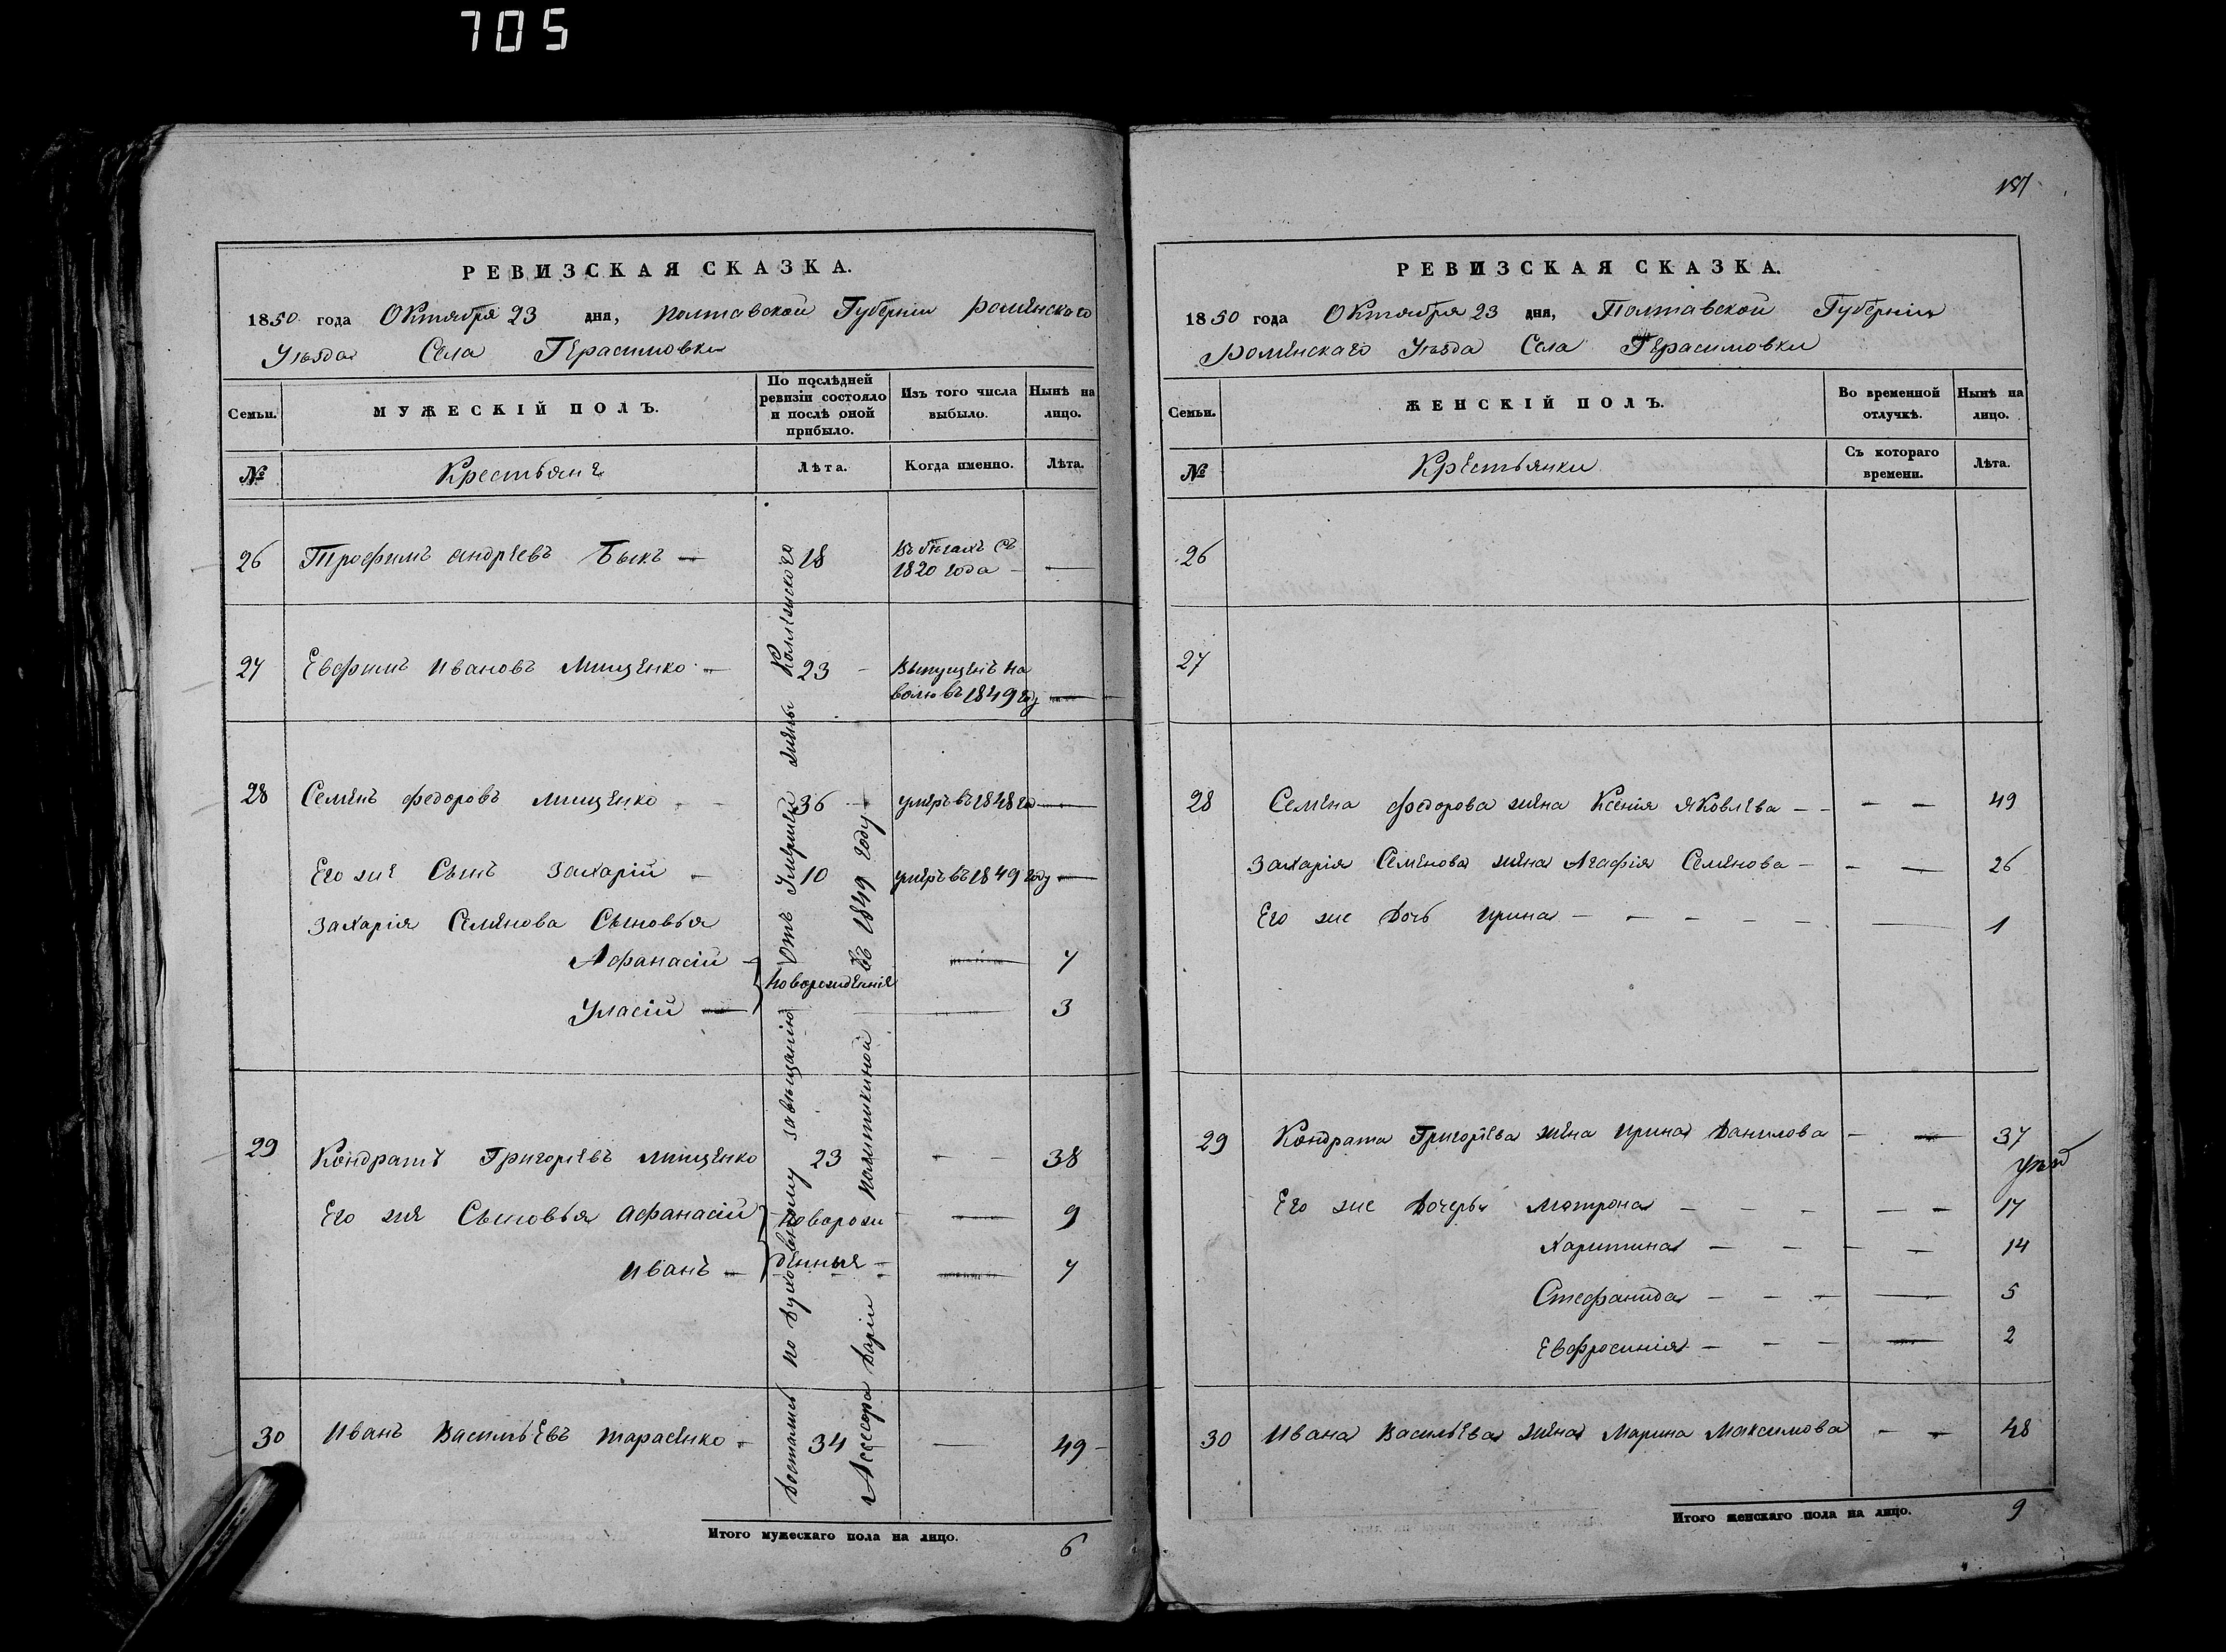 705
РЕВИЗСКАЯ СКАЗКА.
1850 года Октября 23 дня, Полтавской Губерніи Роменского
Уѣзда Села Герасимовки
Семьи.
МУЖЕСКІЙ ПОЛЪ.
По послѣдней ревизіи состояло и послѣ оной прибыло.
Изъ того числа выбыло.
Нынѣ на лицо.
№
Крестьяне
Лѣта.
Когда именно.
Лѣта.
26 Трофимъ Андреевъ Быкъ — 18 Въ бѣгахъ съ
1820 года —
27 Евфимъ Ивановъ Мищенко — 23 — Выпущенъ на
волю въ 1849 году
28 Семенъ Федоровъ Мищенко 36 умеръ въ 1848 го
Его же Сынъ Захарій — 10 умеръ въ 1849 году
Захарія Семенова Сыновья
Афанасій — 7
новорожденніе
Уласій — 3
29 Кондратъ Григоріевъ Мищенко 23 — — 38
Его же Сыновья Афанасій новорож — 9
Иванъ — денныя — 7
30 Иванъ Васильевъ Тарасенко 34 — 49
Достались по духовенному завѣщанію отъ Умершей жены Коллежского
Ассесора Даріи Политикиной въ 1849 году
Итого мужескаго пола на лицо.
6
181
РЕВИЗСКАЯ СКАЗКА.
1850 года Октября 23 дня, Полтавской Губерніи
Роменскаго Уѣзда Села Герасимовки
Семьи.
ЖЕНСКІЙ ПОЛЪ.
Во временной отлучкѣ.
Нынѣ на лицо.
№
Крестьянки
Съ котораго времени.
Лѣта.
26
27
28 Семена Федорова жена Ксенія Яковлева — — — 49
Захарія Семенова жена Агафія Семенова — — — 26
Его же Дочь Ирина — — — — — 1
29 Кондрата Григоріева жена Ирина Данилова — — 37
Его же Дочери Мотрона — — — — — 17
Харитина — — — — 14
Стефанида — — — — 5
Евфросинія — — — — 2
30 Ивана Васильева жена Марина Максимова — — 48
Итого женскаго пола на лицо.
9